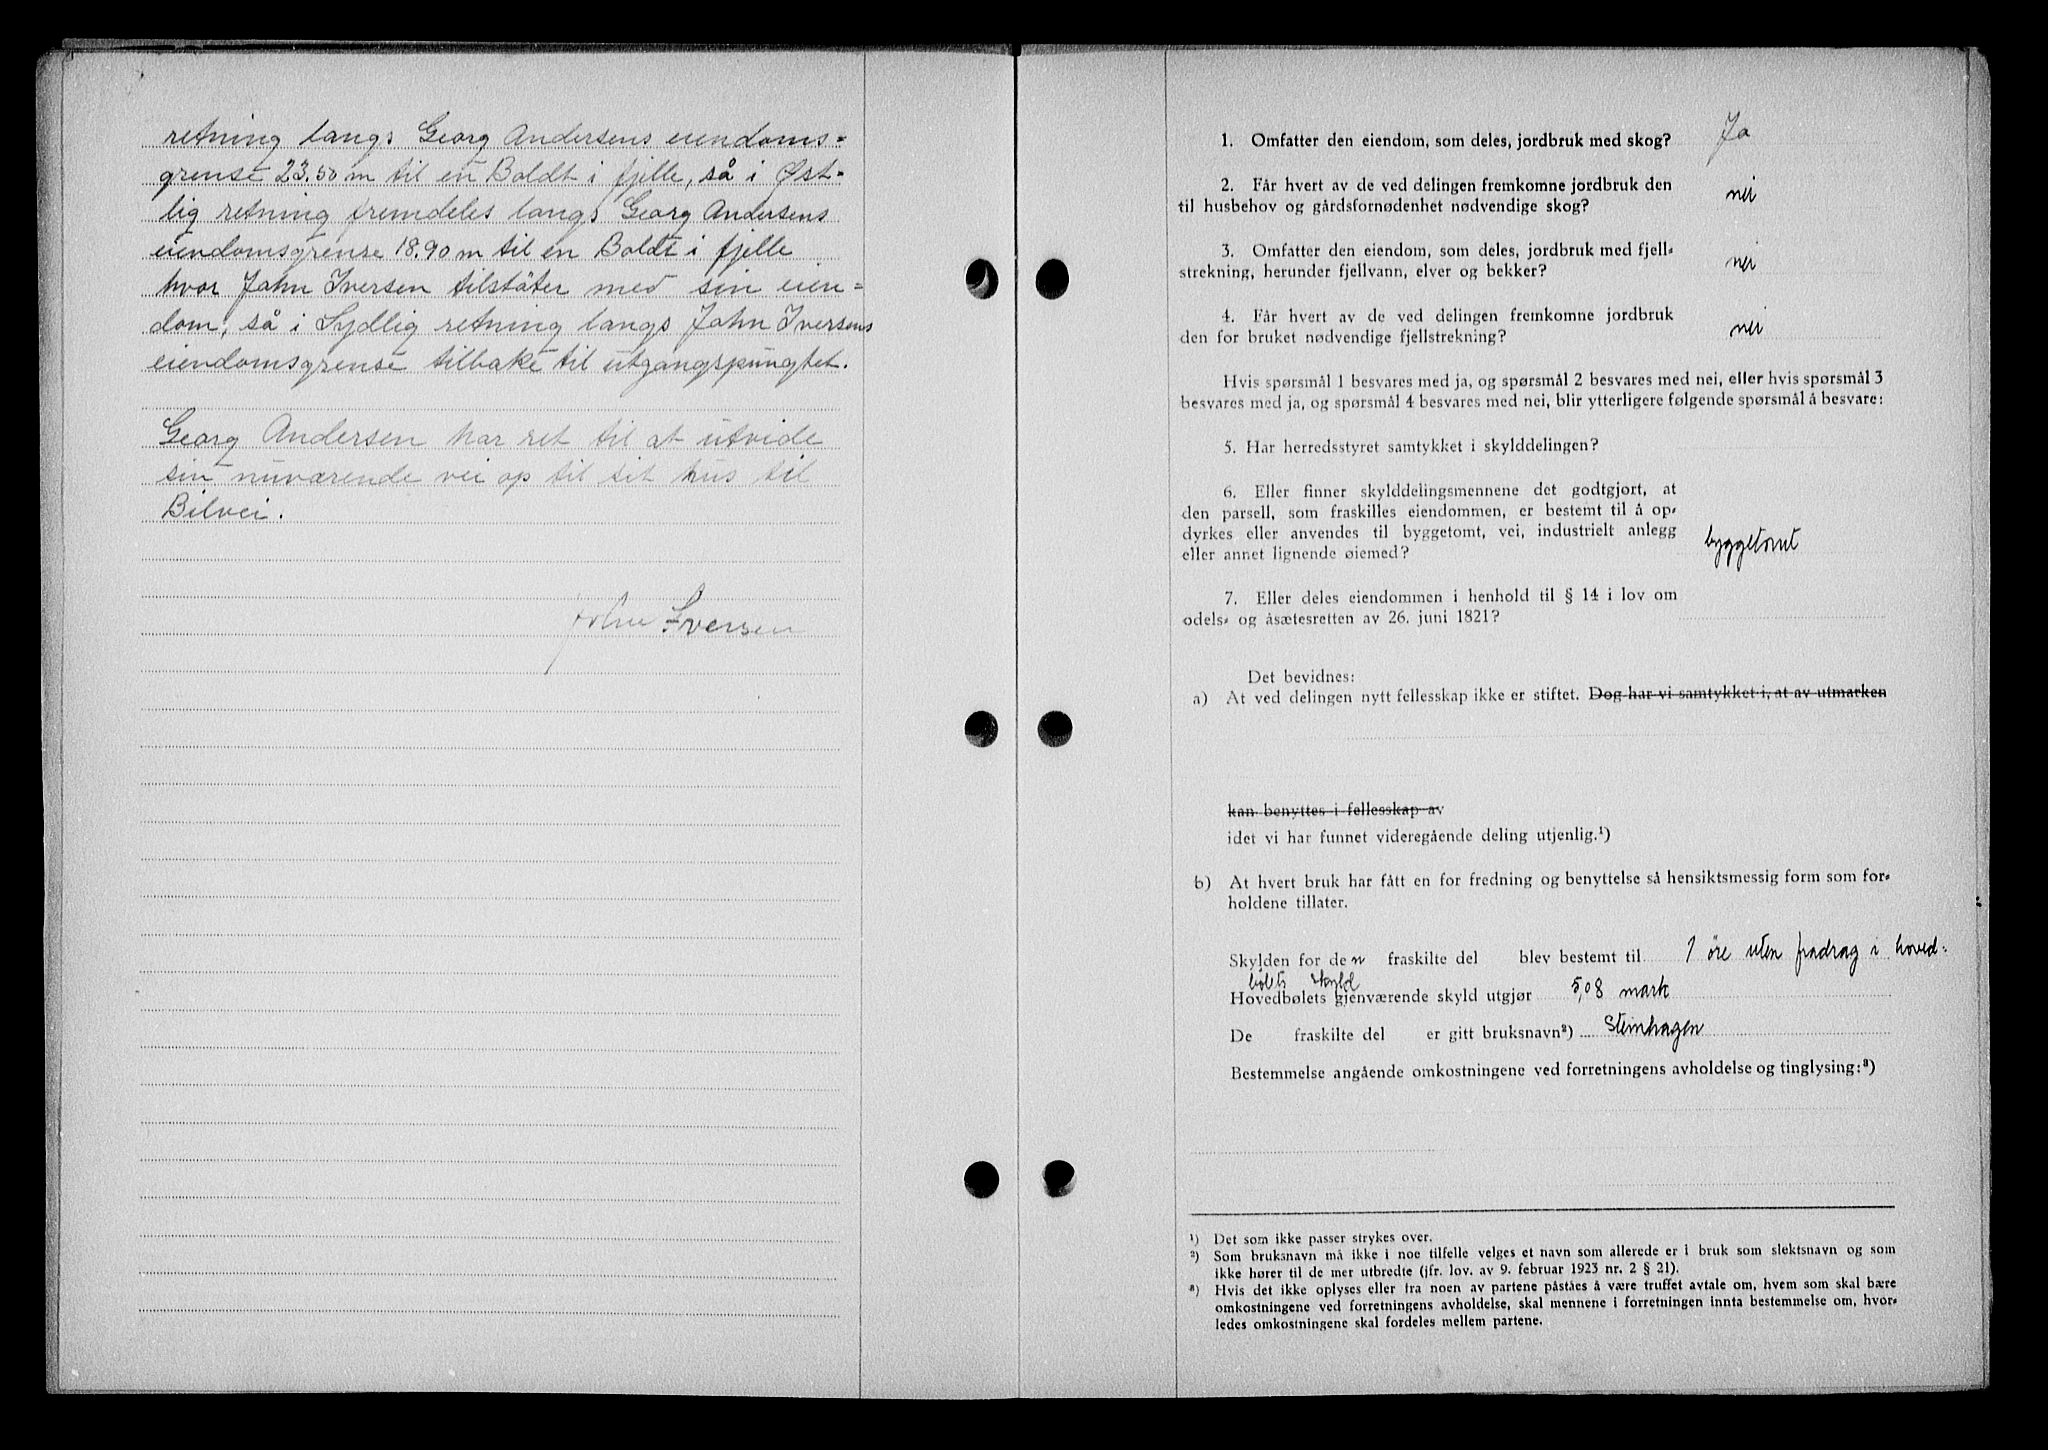 retning langs Georg Andersens eiendoms=
grense 23.50 m til en Boldt i fjelle, så i Øst-
lig retning fremdeles langs Georg Andersens
eiendomsgrense 18.90 m til en Boldt i fjelle
hvor John Iversen tilstöter med sin eien=
dom, så i Sydlig retning langs John Iversens
eiendomsgrense tilbake til utgangspungtet.
Georg Andersen har ret til at utvide
sin nuværende vei op til sit hus til
Bilvei.
John Iversen
1. Omfatter den eiendom, som deles, jordbruk med skog? Ja
2. Får hvert av de ved delingen fremkomne jordbruk den
til husbehov og gårdsfornødenhet nødvendige skog? nei
3. Omfatter den eiendom, som deles, jordbruk med fjell-
strekning, herunder fjellvann, elver og bekker? nei
4. Får hvert av de ved delingen fremkomne jordbruk
den for bruket nødvendige fjellstrekning? nei
Hvis spørsmål 1 besvares med ja, og spørsmål 2 besvares med nei, eller hvis spørsmål 3
besvares med ja, og spørsmål 4 besvares med nei, blir ytterligere følgende spørsmål å besvare:
5. Har herredsstyret samtykket i skylddelingen?
6. Eller finner skylddelingsmennene det godtgjort, at
den parsell, som fraskilles eiendommen, er bestemt til å op-
dyrkes eller anvendes til byggetomt, vei, industrielt anlegg
eller annet lignende øiemed? byggetomt
7. Eller deles eiendommen i henhold til § 14 i lov om
odels- og åsætesretten av 26. juni 1821?
Det bevidnes:
a) At ved delingen nytt fellesskap ikke er stiftet. Dog har vi samtykket i, at av utmarken
kan benyttes i fellesskap av
idet vi har funnet videregående deling utjenlig.¹)
b) At hvert bruk har fått en for fredning og benyttelse så hensiktsmessig form som for-
holdene tillater.
Skylden for den fraskilte del blev bestemt til 1 øre uten fradrag i hoved-
bølets skyld
Hovedbølets gjenværende skyld utgjør 5,08 mark
De fraskilte del er gitt bruksnavn²) Steinhagen
Bestemmelse angående omkostningene ved forretningens avholdelse og tinglysing:³)
¹) Det som ikke passer strykes over.
²) Som bruksnavn må ikke i noe tilfelle velges et navn som allerede er i bruk som slektsnavn og som
ikke hører til de mer utbredte (jfr. lov. av 9. februar 1923 nr. 2 § 21).
³) Hvis det ikke oplyses eller fra noen av partene påstås å være truffet avtale om, hvem som skal bære
omkostningene ved forretningens avholdelse, skal mennene i forretningen innta bestemmelse om, hvor-
ledes omkostningene skal fordeles mellem partene.